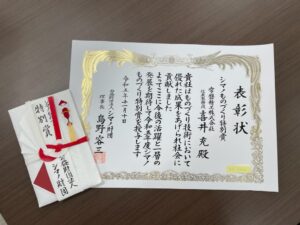 表彰状
シマノものづくり特別賞
喜井 充 殿
貴社はものづくり技術において
優れた成果をあげられ社会に
貢献しました
よってここに今後の活躍と一層の
発展を期待して令和五年度シマノ
ものづくり特別賞を授与します
令和五年十一月十日
公益財団法人シマノ財団
理事長 島野容三
特別賞
公益財団法人
シマノ財団